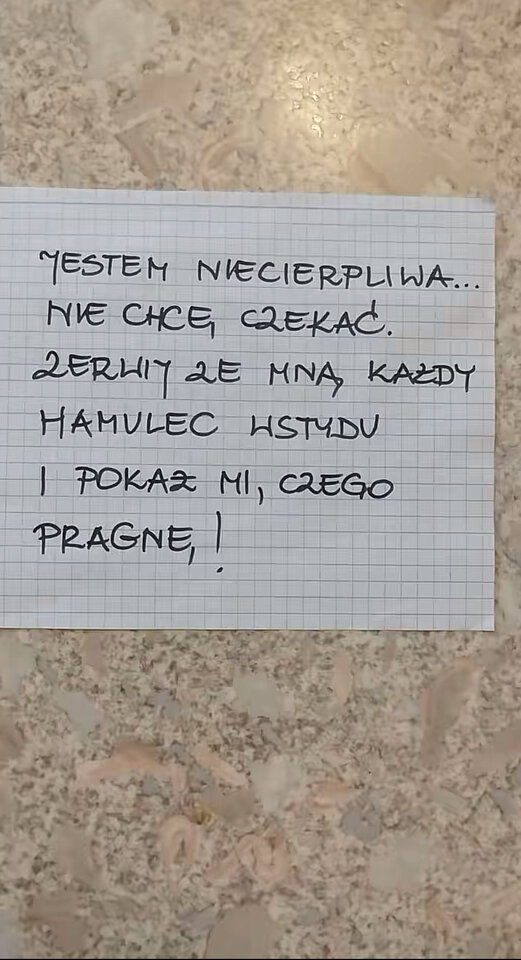 JESTEM NIECIERPLIWA...
NIE CHCĘ CZEKAĆ.
ZERWIJ ZE MNĄ KAŻDY
HAMULEC WSTYDU
I POKAŻ MI, CZEGO
PRAGNĘ!